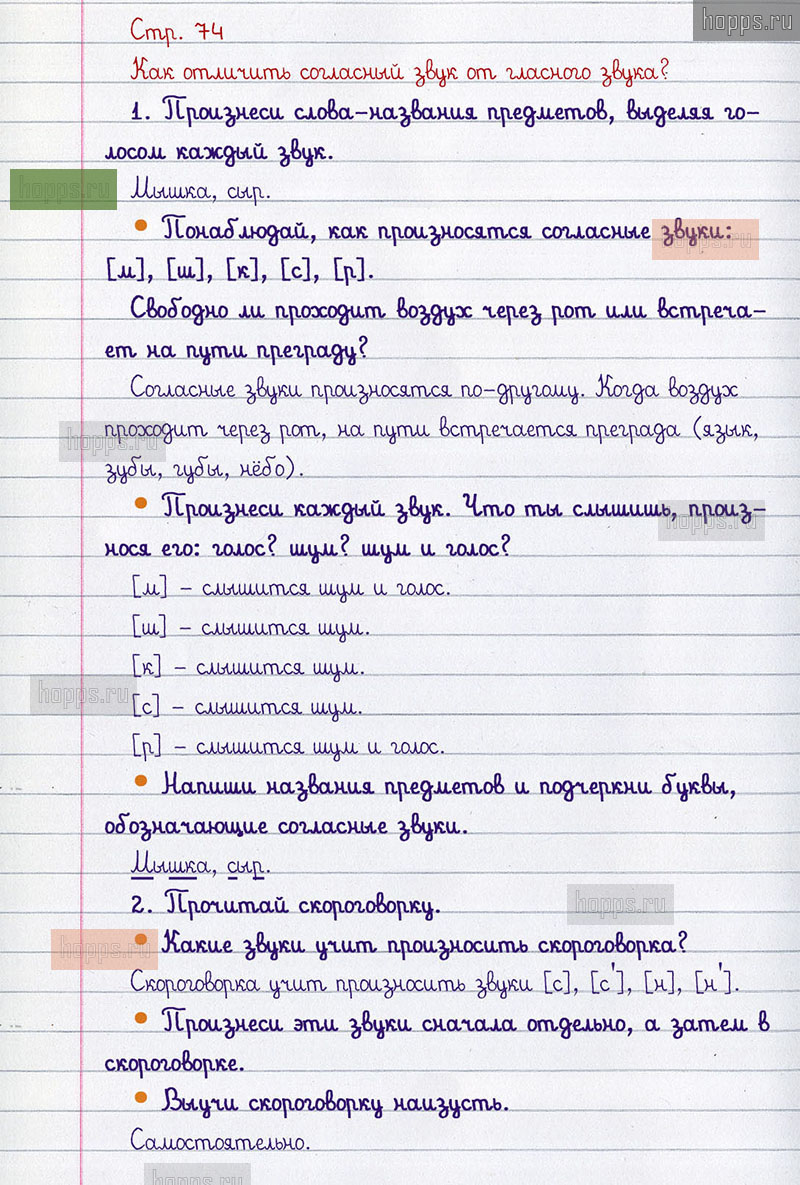 hopps.ru
Стр. 74
Как отличить согласный звук от гласного звука?
1. Произнеси слова-названия предметов, выделяя го-
лосом каждый звук.
hopps.ru
Мышка, сыр.
• Понаблюдай, как произносятся согласные звуки:
hopps.ru
[м], [ш], [к], [с], [р].
Свободно ли проходит воздух через рот или встреча-
ет на пути преграду?
Согласные звуки произносятся по-другому. Когда воздух
проходит через рот, на пути встречается преграда (язык,
hopps.ru
зубы, губы, нёбо).
• Произнеси каждый звук. Что ты слышишь, произ-
hopps.ru
нося его: голос? шум? шум и голос?
[м] – слышится шум и голос.
[ш] – слышится шум.
[к] – слышится шум.
hopps.ru
[с] – слышится шум.
[р] – слышится шум и голос.
• Напиши названия предметов и подчеркни буквы,
обозначающие согласные звуки.
Мышка, сыр.
hopps.ru
2. Прочитай скороговорку.
hopps.ru
• Какие звуки учит произносить скороговорка?
Скороговорка учит произносить звуки [с], [с'], [н], [н'].
• Произнеси эти звуки сначала отдельно, а затем в
скороговорке.
• Выучи скороговорку наизусть.
Самостоятельно.
hopps.ru